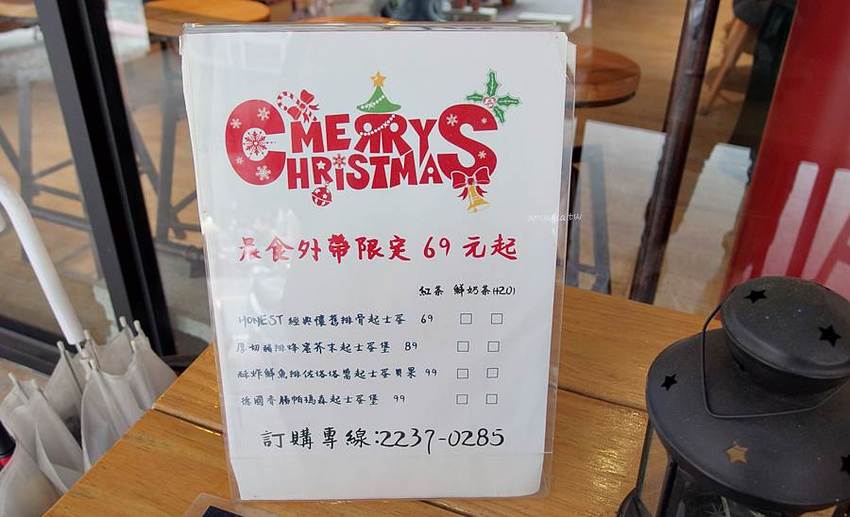 MERRY
CHRISTMAS
晨食外帶限定 69 元起
紅茶 鮮奶茶(+20)
HONEST 經典懷舊排骨起士蛋 69 □ □
厚切豬排蜂蜜芥末起士蛋堡 89 □ □
酥炸鮮魚排佐塔塔醬起士蛋貝果 99 □ □
德國香腸帕瑪森起士蛋堡 99 □ □
訂購專線:2237-0285